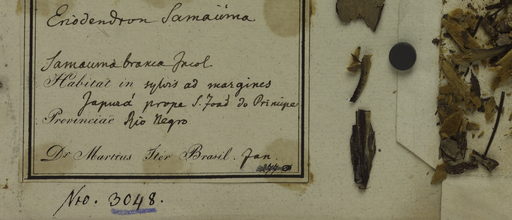 Eriodendron Samaüma
Samauma branca Incol.
Habitat in sylvis ad margines
Japurá prope S. Joaõ do Principe
Provinciae Rio Negro.
Dr Martius Iter Brasil. Jan.
Nro. 3048.